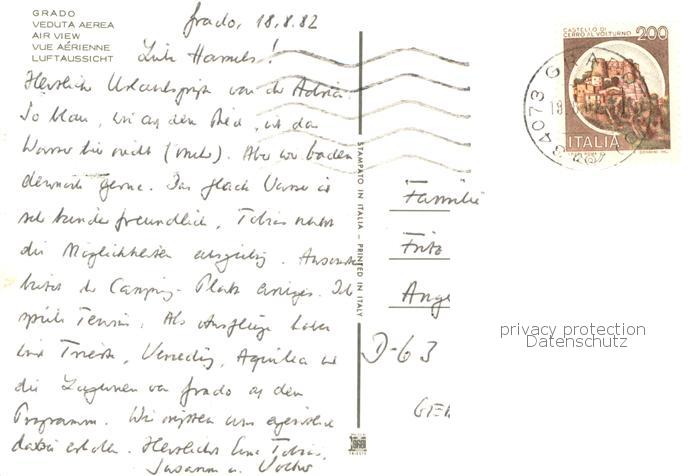 GRADO
VEDUTA AEREA
AIR VIEW
VUE AÉRIENNE
LUFTAUSSICHT
Grado, 18.8.82
Liebe
Herzliche Urlaubsgrüße von der Adria.
So blau, wie auf dem Bild, ist das
Wasser hier nicht (mehr). Aber wir baden
dennoch gerne. Das flache Wasser ist
sehr kinderfreundlich, Tobias nutzt
die Möglichkeiten ausgiebig. Ansonsten
bietet der Camping-Platz einiges. Ich
spiele Tennis. Als Ausflüge haben
wir Triest, Venedig, Aquileia und
die Lagunen von Grado auf dem
Programm. Wir müssten uns eigentlich
dabei erholen. Herzlichst Eure Tobias,
Susanne u. Volker
STAMPATO IN ITALIA - PRINTED IN ITALY
CASTELLO DI
CERRO AL VOLTURNO
200
ITALIA
34073 GRADO
Familie
Fritz
Ange
D-63
GER
privacy protection
Datenschutz